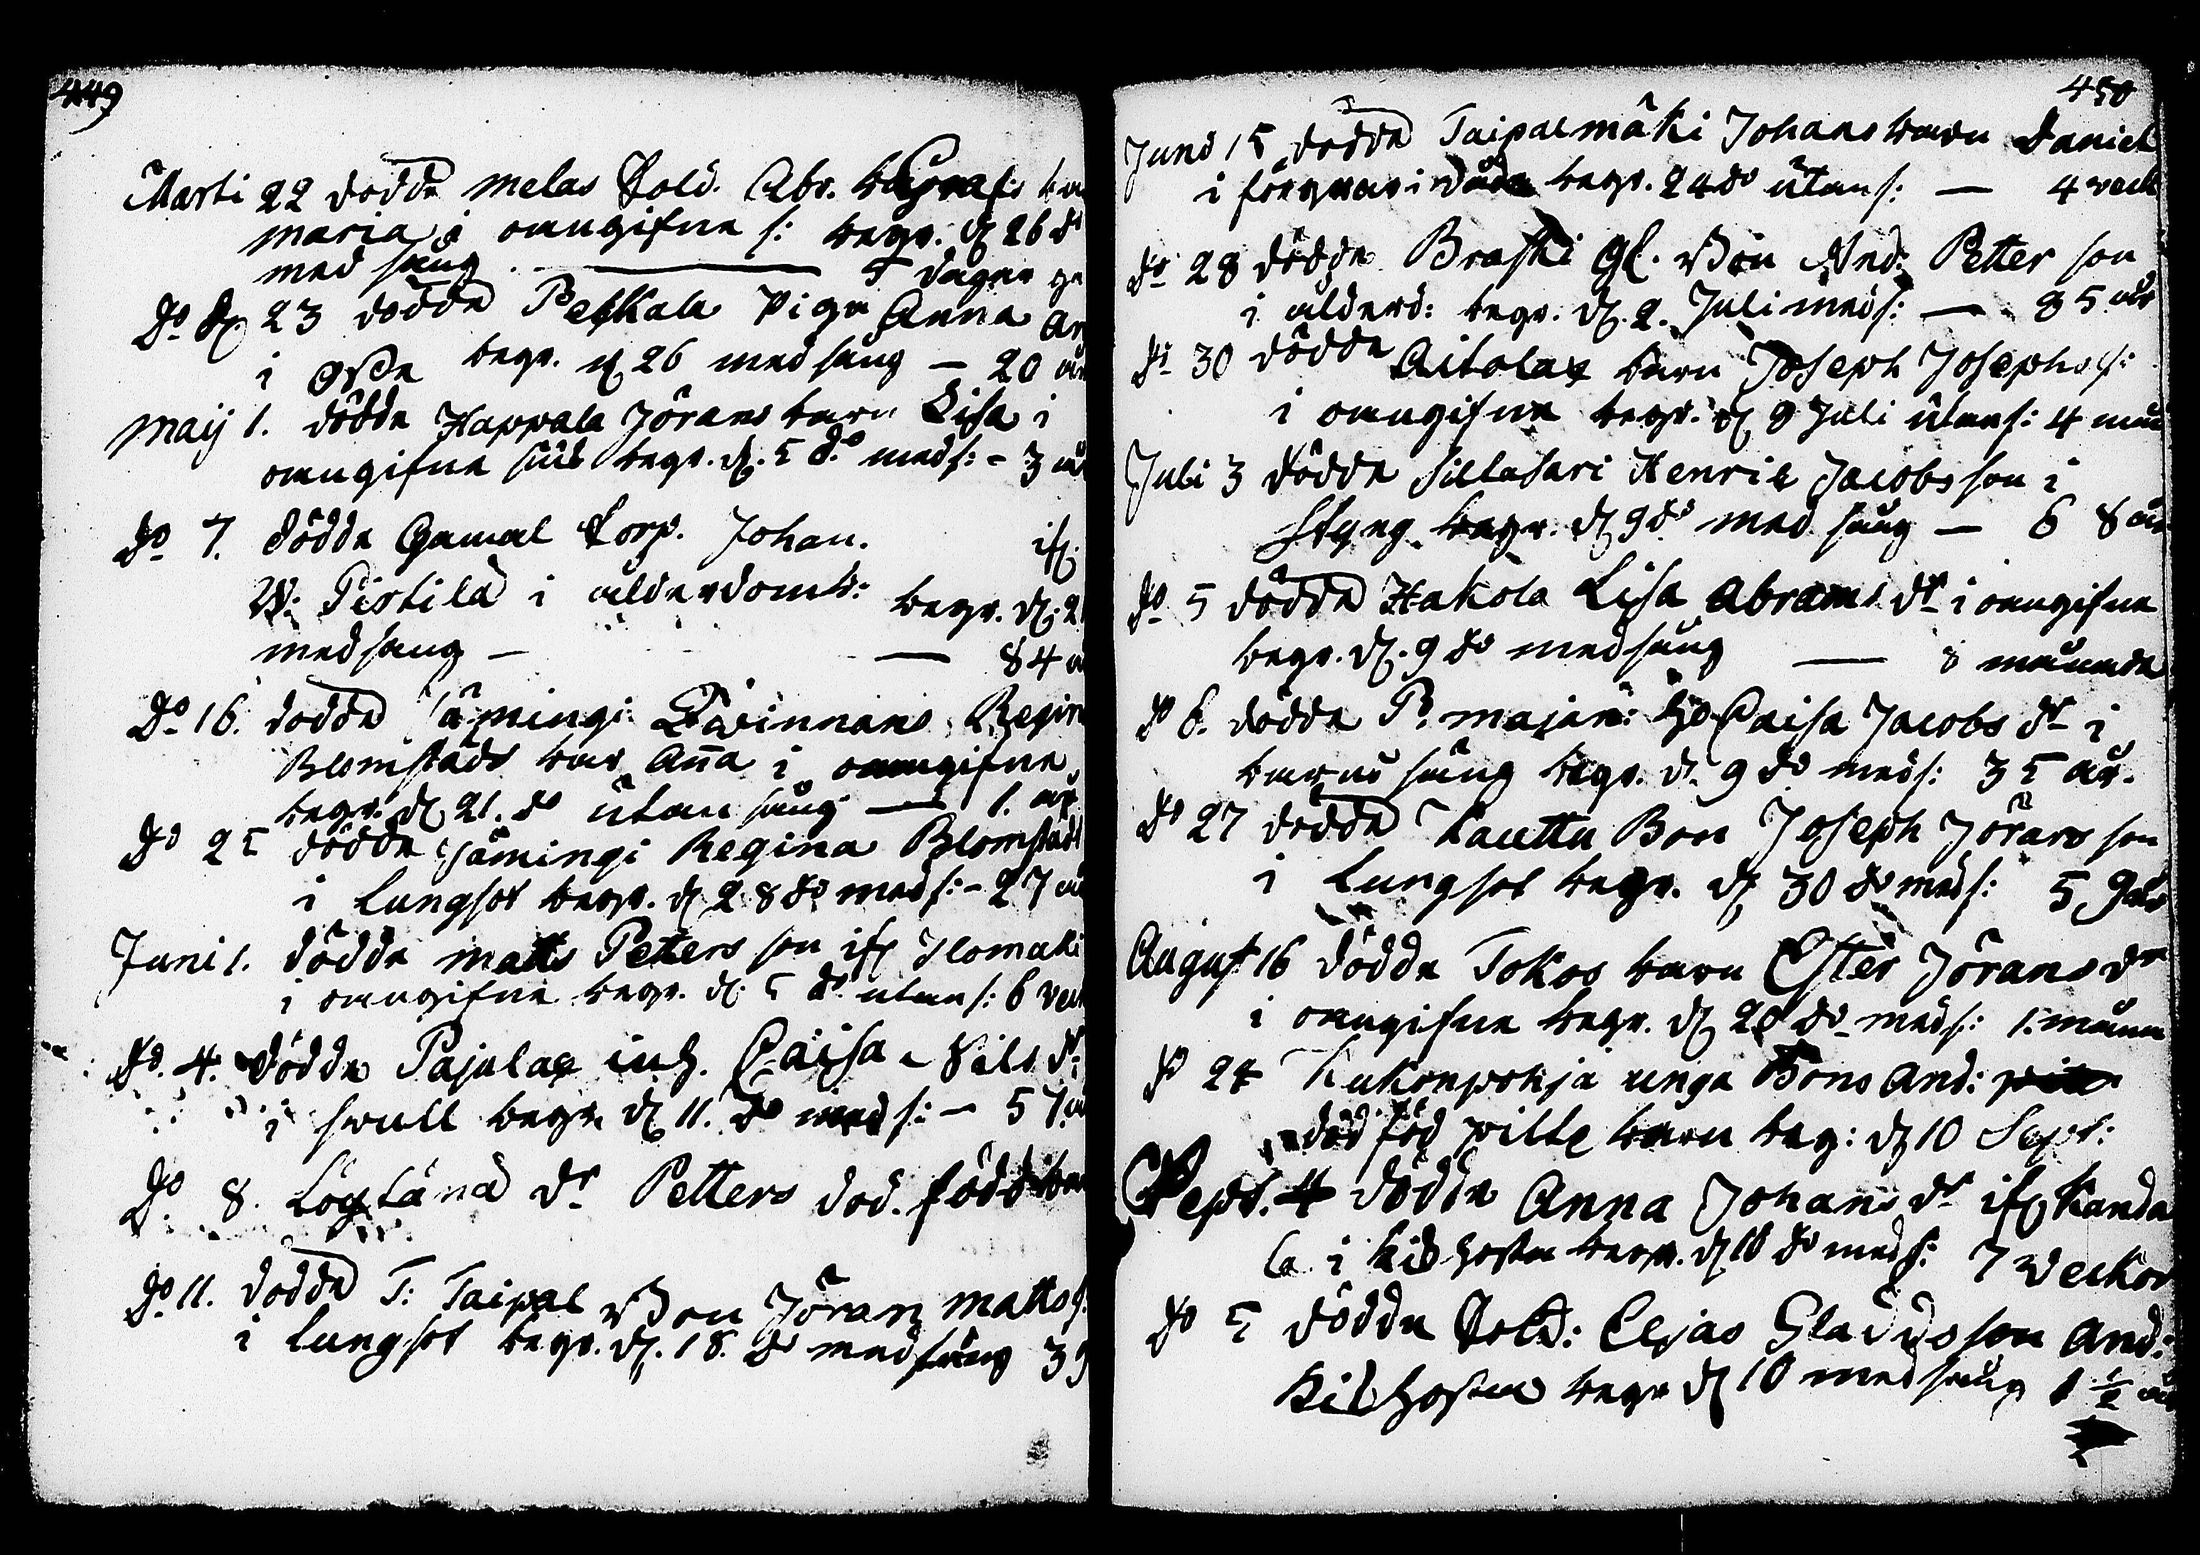 449
Marti 22 dödde Melas Sold. Abr. barn
Maria i omngifne s: begr. d 26 do
med sång — 5 dagar
do d 23 dödde Peskala Piga Anna
i begr. d 26 med sång — 20 år
Maij 1. dödde Kappala Jörans barn Lisa i
omngifne siuk begr. d. 5 do med s: - 3 år
do 7. dödde Gamal Corp. Johan. if.
W: Pertila i ålderdomb: begr. d. 2
med sång — — 84 å
do 16. dödde Jämingi Qwinnans Regin
Blomstads barn Anna i omngifne
begr. d 21. do utan sång — 1. år
do 25 dödde Jämingi Regina Blomstadt
i Lungsot begr. d 28 do med s: - 27 år
Juni 1. dödde Matts Petters son if Ilomäki
i omngifne begr. d. 5 do utan s: 6 veck
do. 4. dödde Pajulax inh. Caisa Nils dr
i swull begr. d 11. do med s: - 57 å
do 8. Löytänä dr Petters död. född bar
do 11. dödde T: Taipal Bon Jöran Matts s.
i Lungsot begr. d. 18. do med sång 39
450
Juni 15 dödde Taipalmäki Johans barn Daniel
i begr. 24 do utan s: — 4 veck
do 28 dödde Braski Gl. Bon And: Petter son
i ålderd: begr. d. 2. Juli med s: — 85 år
do 30 dödde Aitolax barn Joseph Josephs s:
i omngifne begr. d 9 Juli utan s: 4 mån
Juli 3 dödde Sillasari Henric Jacobs son i
Styng begr. d 9 do med sång — 68 år
do 5 dödde Hakola Lisa Abrams dr i omngifne
begr. d. 9 do med sång — 8 månade
do 6. dödde P. Majan: Caisa Jacobs dr i
barns säng begr. d. 9 do med s: 35 år.
do 27 dödde Lauttu Bon Joseph Jörans son
i Lungsot begr. d 30 do med s: 59 år
August 16 dödde Tokos barn Ester Jörans dr
i omngifne begr. d 20 do med s: 1. månu
do 24 Kukonpohja unga Bons And:
död föd pilte barn beg: d 10 Sept:
Sept. 4 dödde Anna Johans dr if Kanda
la i kikhosta begr. d 10 do med s: 7 Veckor
do 5 dödde Sold: Elias Gladds son And:
kikhostan begr d 10 med sång 1 1/2 år